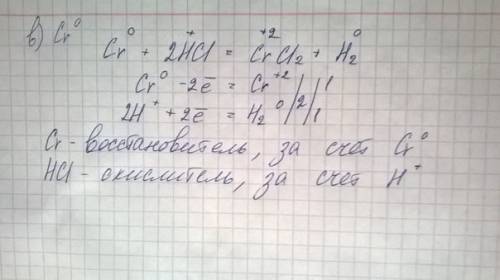 в) Cr⁰
Cr⁰ + 2H⁺Cl = Cr⁺²Cl₂ + H₂⁰
Cr⁰ - 2ē = Cr⁺² | | 1
2H⁺ + 2ē = H₂⁰ | 2 | 1
Cr - восстановитель, за счёт Cr⁰
HCl - окислитель, за счёт H⁺